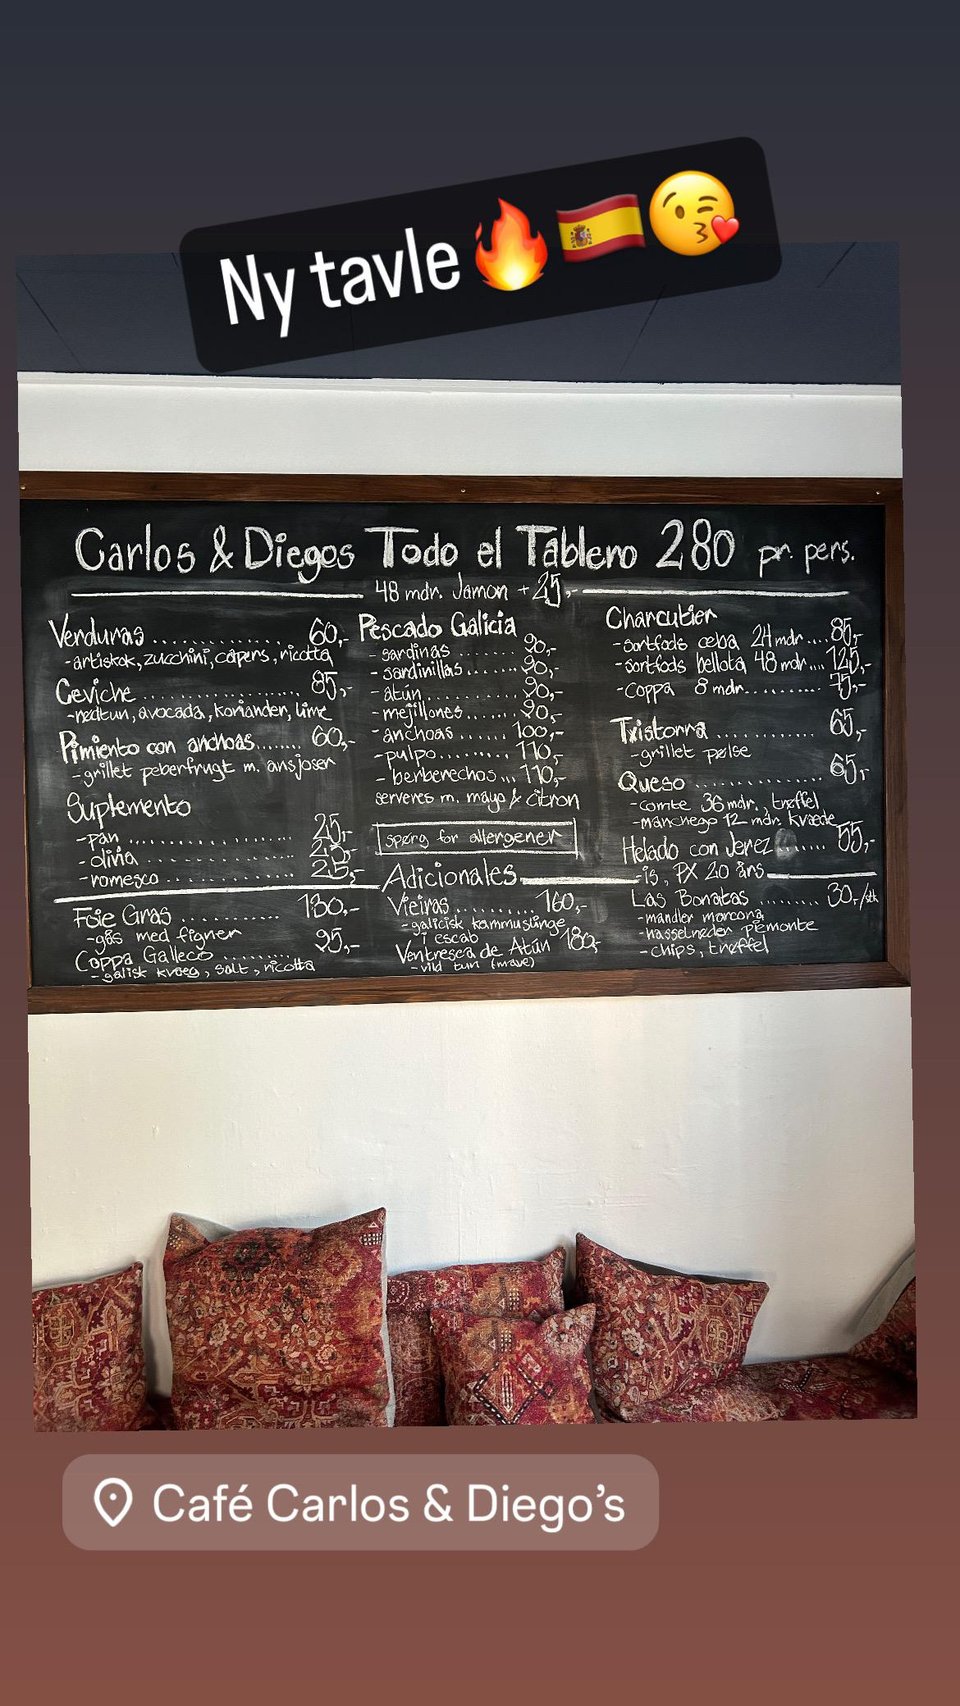 Ny tavle🔥🇪🇸😘
Carlos & Diegos Todo el Tablero 280 pr. pers.
48 mdr. Jamon + 25,-
Verduras ............. 60,-
-artiskok, zucchini, capers, ricotta
Ceviche .................. 85,-
-rødtun, avocado, koriander, lime
Pimiento con anchoas....... 60,-
-grillet peberfrugt m. ansjoser
Suplemento
-pan ..................... 25,-
-olivia ................. 25,-
-romesco ............... 25,-
Foie Gras ........... 130,-
-gås med figner
Coppa Galleco ......... 95,-
-galisk kvæg, salt, ricotta
Pescado Galicia
-sardinas ........ 90,-
-sardinillas...... 90,-
-atún ........... 90,-
-mejillones....... 90,-
-anchoas ...... 100,-
-pulpo......... 110,-
-berberechos ... 110,-
serveres m. mayo & citron
spørg for allergener
Adicionales
Vieiras ......... 160,-
-galicisk kammuslinge
i escab
Ventresca de Atún 180,-
-vild tun (mave)
Charcutier
-sortfods ceba 24 mdr.... 85,-
-sortfods bellota 48 mdr.... 125,-
-coppa 8 mdn.......... 75,-
Txistorra ............ 65,-
-grillet pølse
Queso .............. 65,-
-comte 36 mdr., trøffel
-manchego 12 mdr. kvæde
Helado con Jerez ...... 55,-
-is, PX 20 års
Las Bonatas ........ 30,-/stk
-mandler marcona
-hasselnødder piemonte
-chips, trøffel
Café Carlos & Diego's